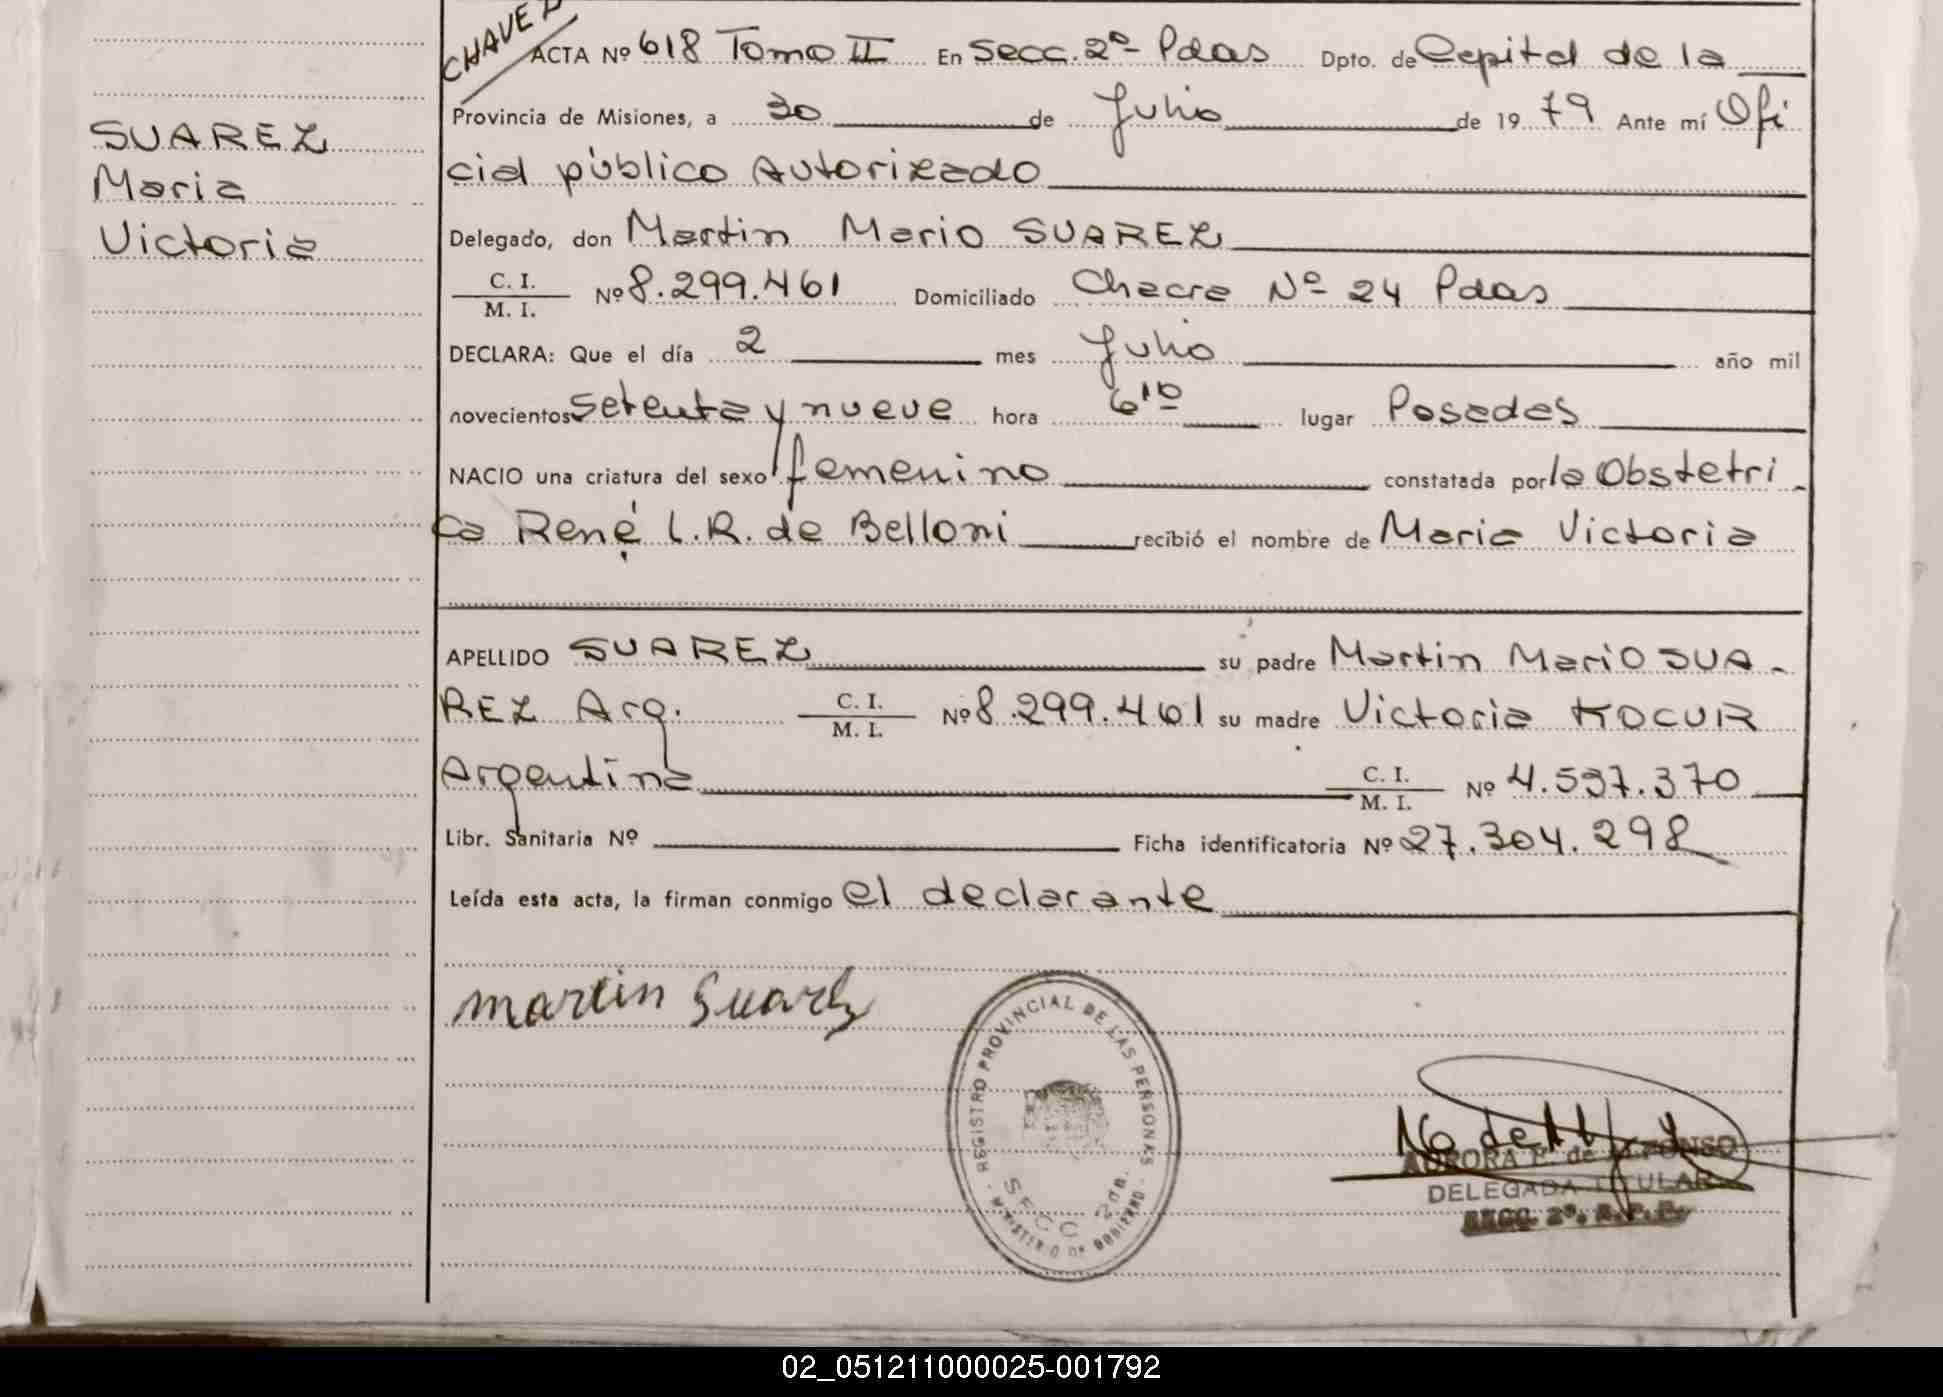 CHAVE
ACTA Nº 618 Tomo II En Secc. 2º Pdas Dpto. de Capital de la
Provincia de Misiones, a 30 de Julio de 1979 Ante mí Ofi
cial público Autorizado
SUAREZ
Maria
Victoria
Delegado, don Martin Mario SUAREZ
C. I.
M. I. Nº 8.299.461 Domiciliado Chacra Nº 24 Pdas
DECLARA: Que el día 2 mes Julio año mil
novecientos setenta y nueve hora 6 10 lugar Posadas
NACIO una criatura del sexo femenino constatada por la Obstetri
ca René L.R. de Belloni recibió el nombre de Maria Victoria
APELLIDO SUAREZ su padre Martin Mario SUA-
REZ Arg. C. I.
M. I. Nº 8.299.461 su madre Victoria KOCUR
Argentina C. I.
M. I. Nº 4.537.370
Libr. Sanitaria Nº Ficha identificatoria Nº 27.304.298
Leída esta acta, la firman conmigo el declarante
martin Suarez
REGISTRO PROVINCIAL DE LAS PERSONAS
SECC 2da.
- MINISTERIO DE GOBIERNO -
AURORA de ALFONSO
DELEGADA TITULAR
SECC. 2º. R.P.P.
02_051211000025-001792